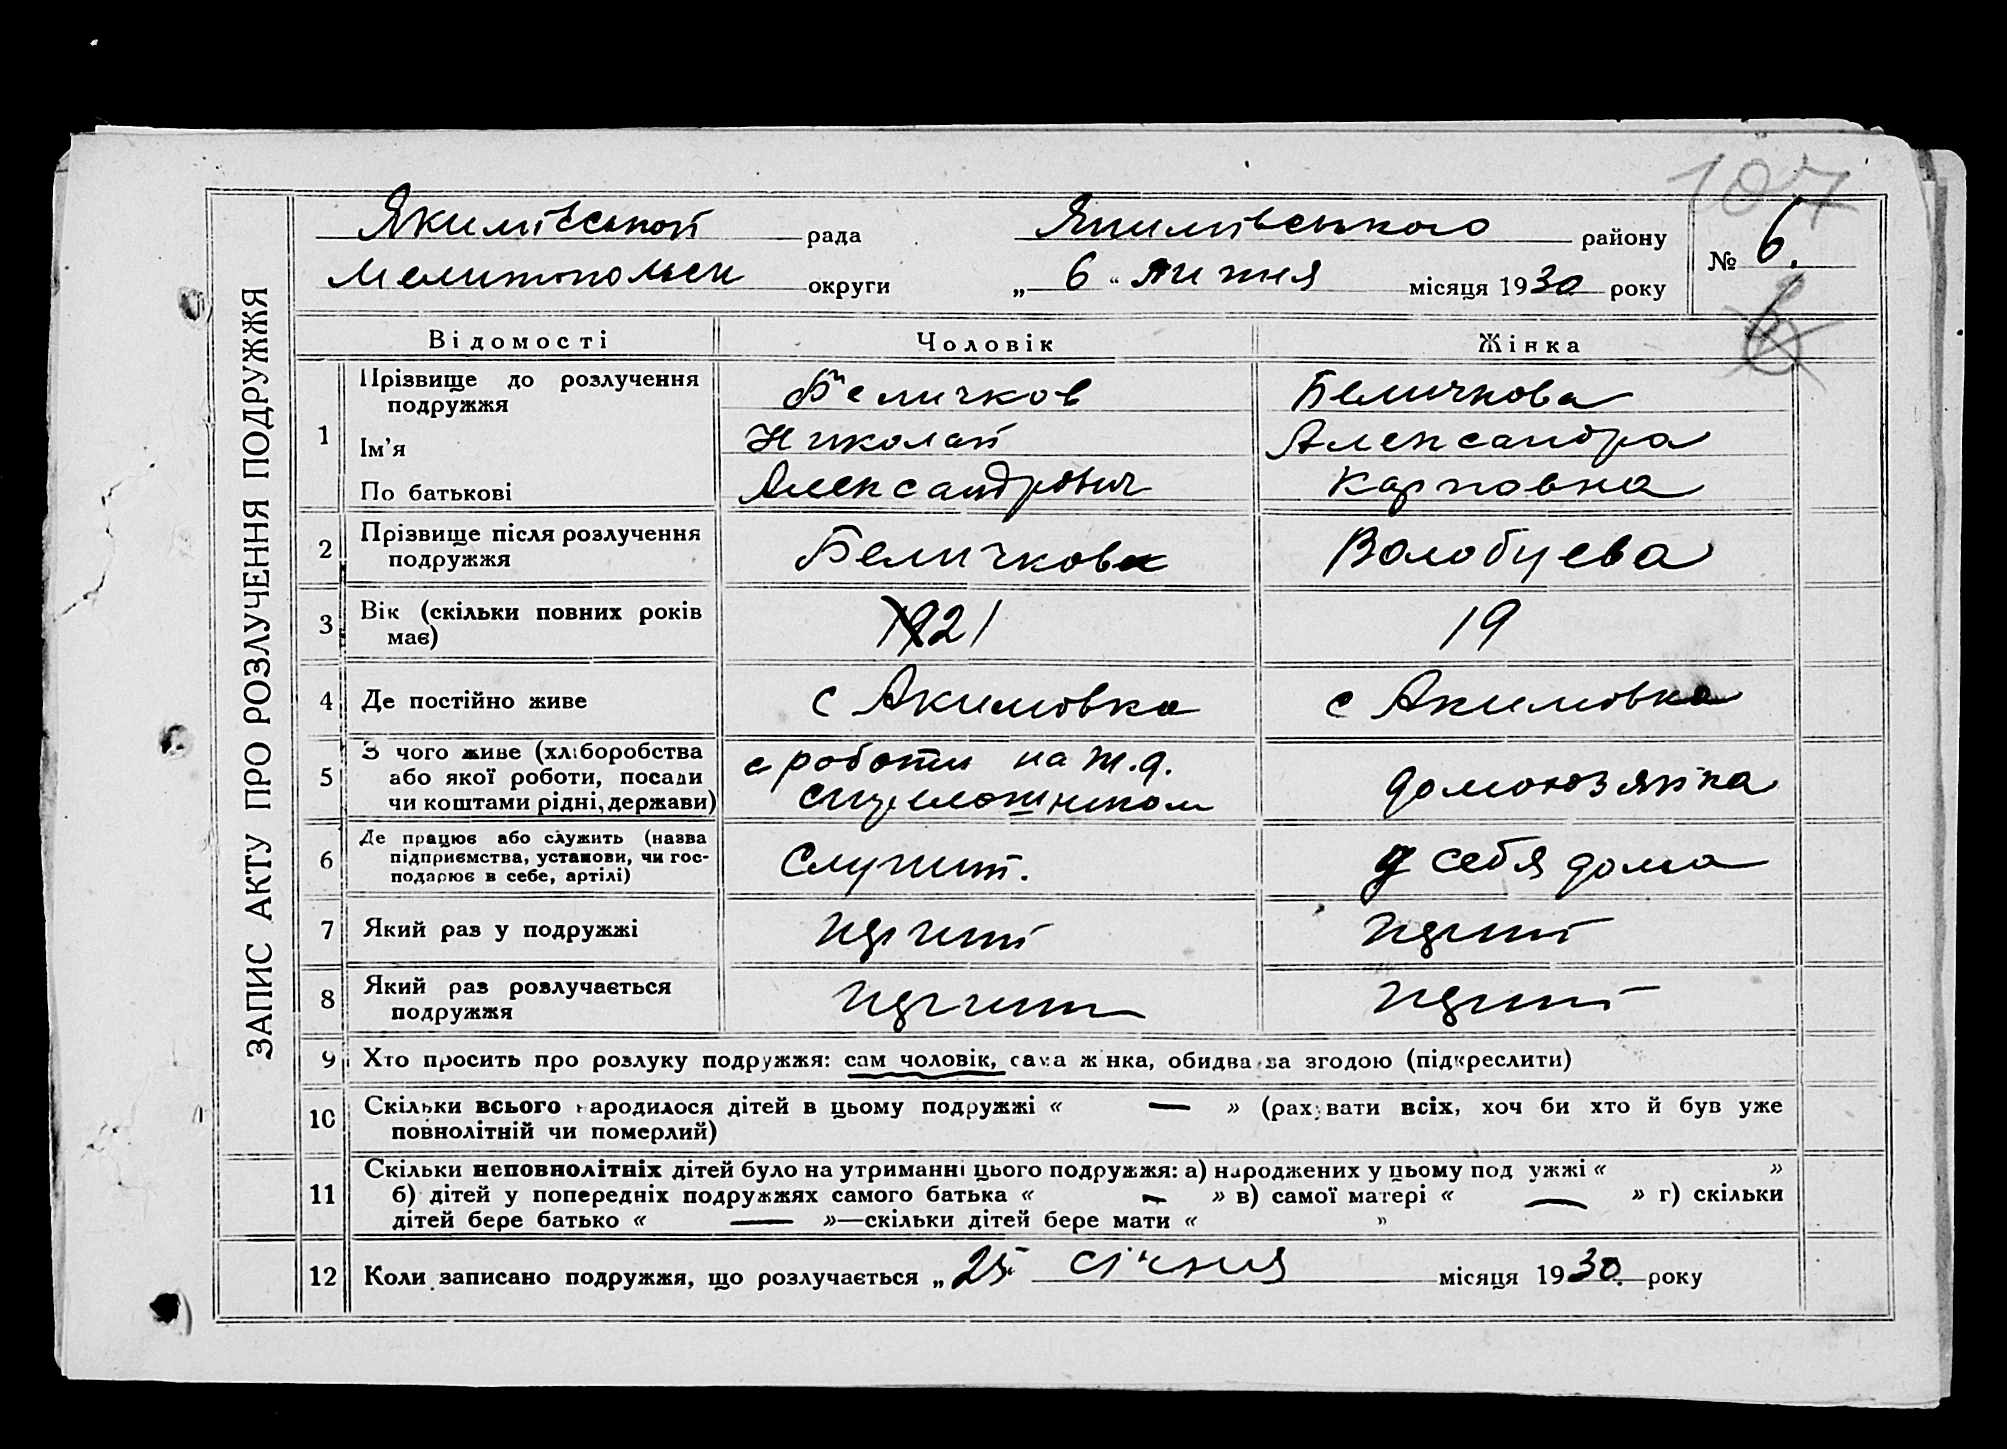 107
Якимівской рада Якимівського району № 6.
Мелитопольск округи „ 6 “ липня місяця 1930 року
6
ЗАПИС АКТУ ПРО РОЗЛУЧЕННЯ ПОДРУЖЖЯ
Відомості Чоловік Жінка
1 Прізвище до розлучення подружжя Беличков Беличкова
Ім'я Николай Александра
По батькові Александрович Карповна
2 Прізвище після розлучення подружжя Беличков Волобуева
3 Вік (скільки повних років має) 21 19
4 Де постійно живе с Акимовка с Акимовка
5 З чого живе (хліборобства
або якої роботи, посади с работы на ж.д. домохозяйка
чи коштами рідні, держави)
6 Де працює або служить (назва
підприємства, установи, чи гос- Служит. у себя дома
подарює в себе, артілі)
7 Який раз у подружжі
8 Який раз розлучається
подружжя
9 Хто просить про розлуку подружжя: сам чоловік, сама жінка, обидва за згодою (підкреслити)
10 Скільки всього народилося дітей в цьому подружжі « — » (рахувати всіх, хоч би хто й був уже
повнолітній чи померлий)
11 Скільки неповнолітніх дітей було на утриманні цього подружжя: а) народжених у цьому подружжі « »
б) дітей у попередніх подружжях самого батька « — » в) самої матері « — » г) скільки
дітей бере батько « — »—скільки дітей бере мати « »
12 Коли записано подружжя, що розлучається „ 25 “ січня місяця 1930 року